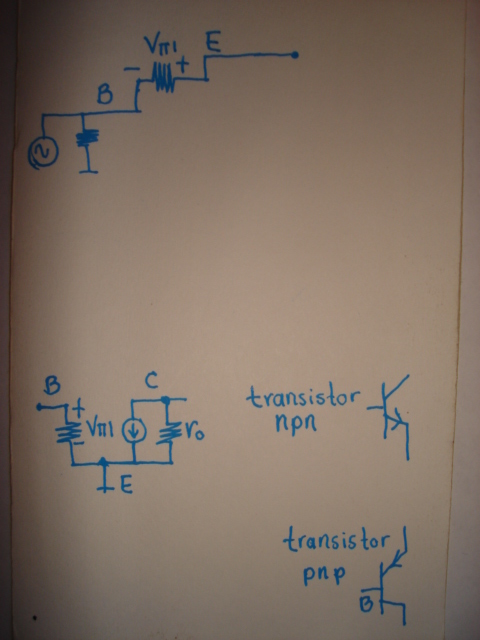 Vπ1 E
- +
B
B C
+
Vπ1 ro
-
E
transistor
npn
transistor
pnp
B